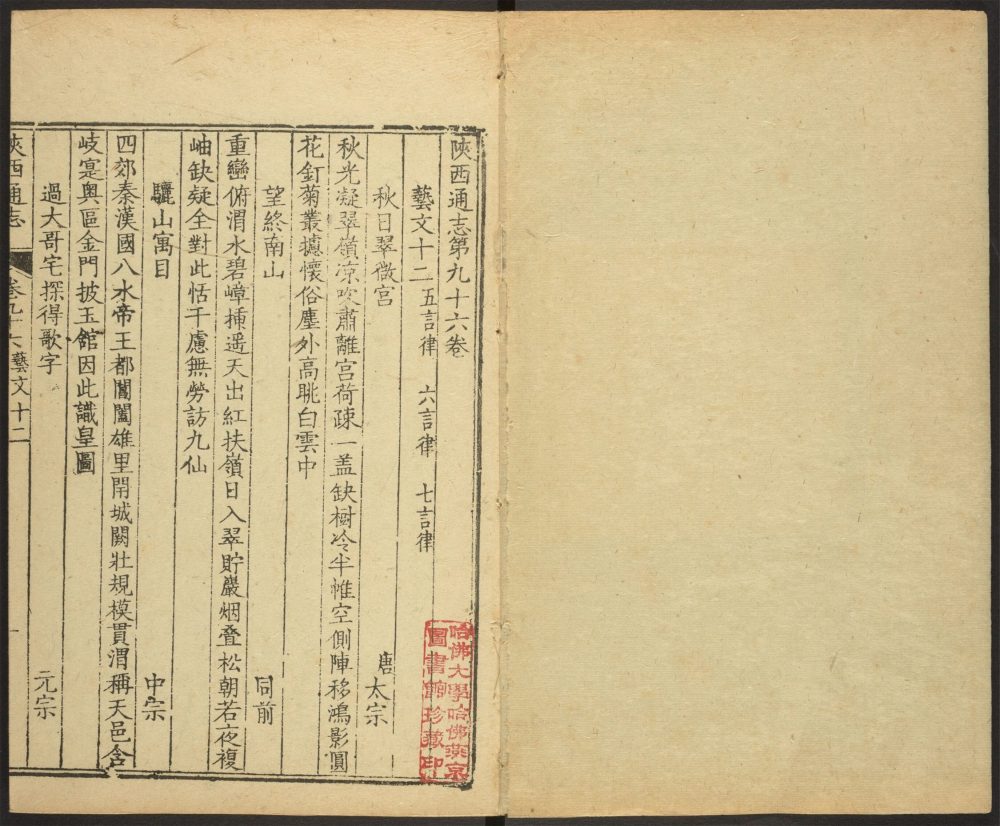 陝西通志第九十六卷
藝文十二 五言律 六言律 七言律
秋日翠微宮 唐太宗
秋光凝翠嶺凉吹肅離宮荷疎一盖缺樹冷半帷空側陣移鴻影圓
花釘菊叢攄懷俗塵外高眺白雲中
望終南山 同前
重巒俯渭水碧嶂揷遥天出紅扶嶺日入翠貯巖烟叠松朝若夜複
岫缺疑全對此恬千慮無勞訪九仙
驪山寓目 中宗
四郊秦漢國八水帝王都閶闔雄里閈城闕壯規模貫渭稱天邑含
岐寔奥區金門披玉舘因此識皇圖
過大哥宅探得歌字 元宗
陝西通志 卷九十六藝文十二 一
哈佛大學哈佛燕京
圖書館珍藏印